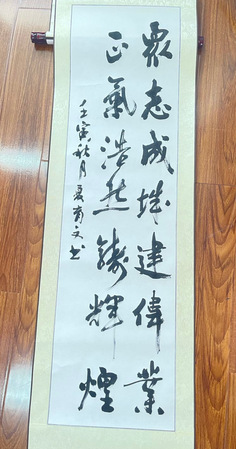 眾志成城建偉業
正氣浩然鑄輝煌
壬寅秋月袁育文书